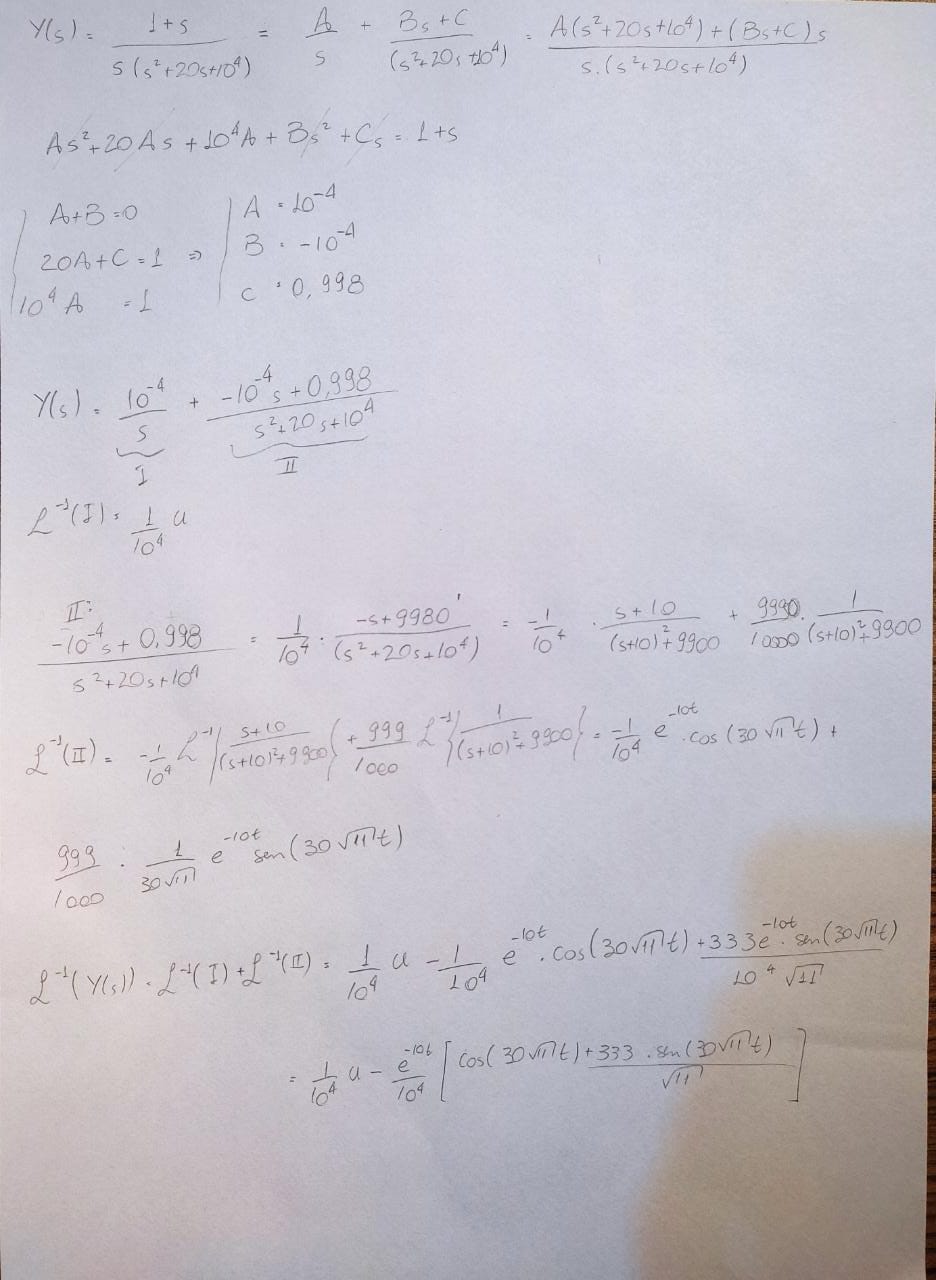 Y(s) = 1+s / s(s²+20s+10⁴) = A/s + Bs+C / (s²+20s+10⁴) = A(s²+20s+10⁴)+(Bs+C)s / s.(s²+20s+10⁴)
As²+20As+10⁴A+Bs²+Cs = 1+s
A+B=0 A = 10⁻⁴
20A+C=1 ⇒ B = -10⁻⁴
10⁴A =1 C = 0,998
Y(s) = 10⁻⁴/s + -10⁻⁴s+0,998 / s²+20s+10⁴
I II
ℒ⁻¹(I) = 1/10⁴ u
II:
-10⁻⁴s+0,998 / s²+20s+10⁴ = 1/10⁴ · -s+9980 / (s²+20s+10⁴) = -1/10⁴ · s+10 / (s+10)²+9900 + 9990/10000 · 1 / (s+10)²+9900
ℒ⁻¹(II) = -1/10⁴ ℒ⁻¹{s+10 / (s+10)²+9900} + 999/1000 ℒ⁻¹{1 / (s+10)²+9900} = -1/10⁴ e⁻¹⁰ᵗ.cos(30√11 t)+
999/1000 · 1/30√11 e⁻¹⁰ᵗ sen(30√11 t)
ℒ⁻¹(Y(s)) = ℒ⁻¹(I)+ℒ⁻¹(II) = 1/10⁴ u - 1/10⁴ e⁻¹⁰ᵗ.cos(30√11 t)+333e⁻¹⁰ᵗ.sen(30√11 t) / 10⁴√11
= 1/10⁴ u - e⁻¹⁰ᵗ/10⁴ [cos(30√11 t)+333.sen(30√11 t) / √11]